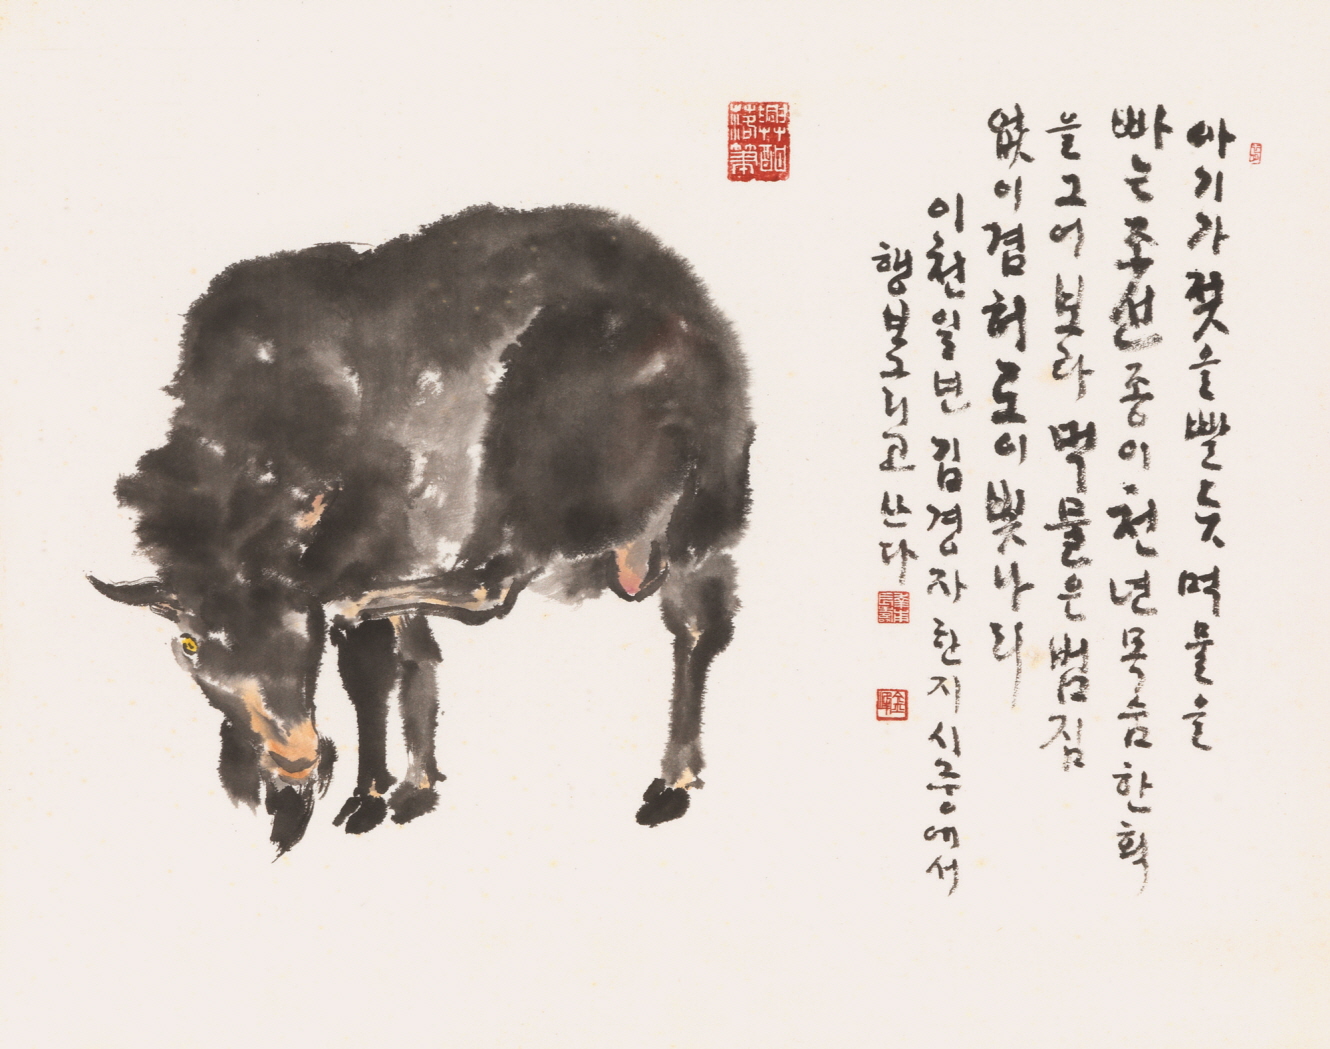 아기가 젖을 빨듯 먹물을
빠는 조선종이 천년 목숨 한 획
을 그어 보라 먹물은 범짐
없이 겸허로이 빛나리
이천일년 김경자 한지 시 중에서
행보 그리고 쓰다
興酣落筆